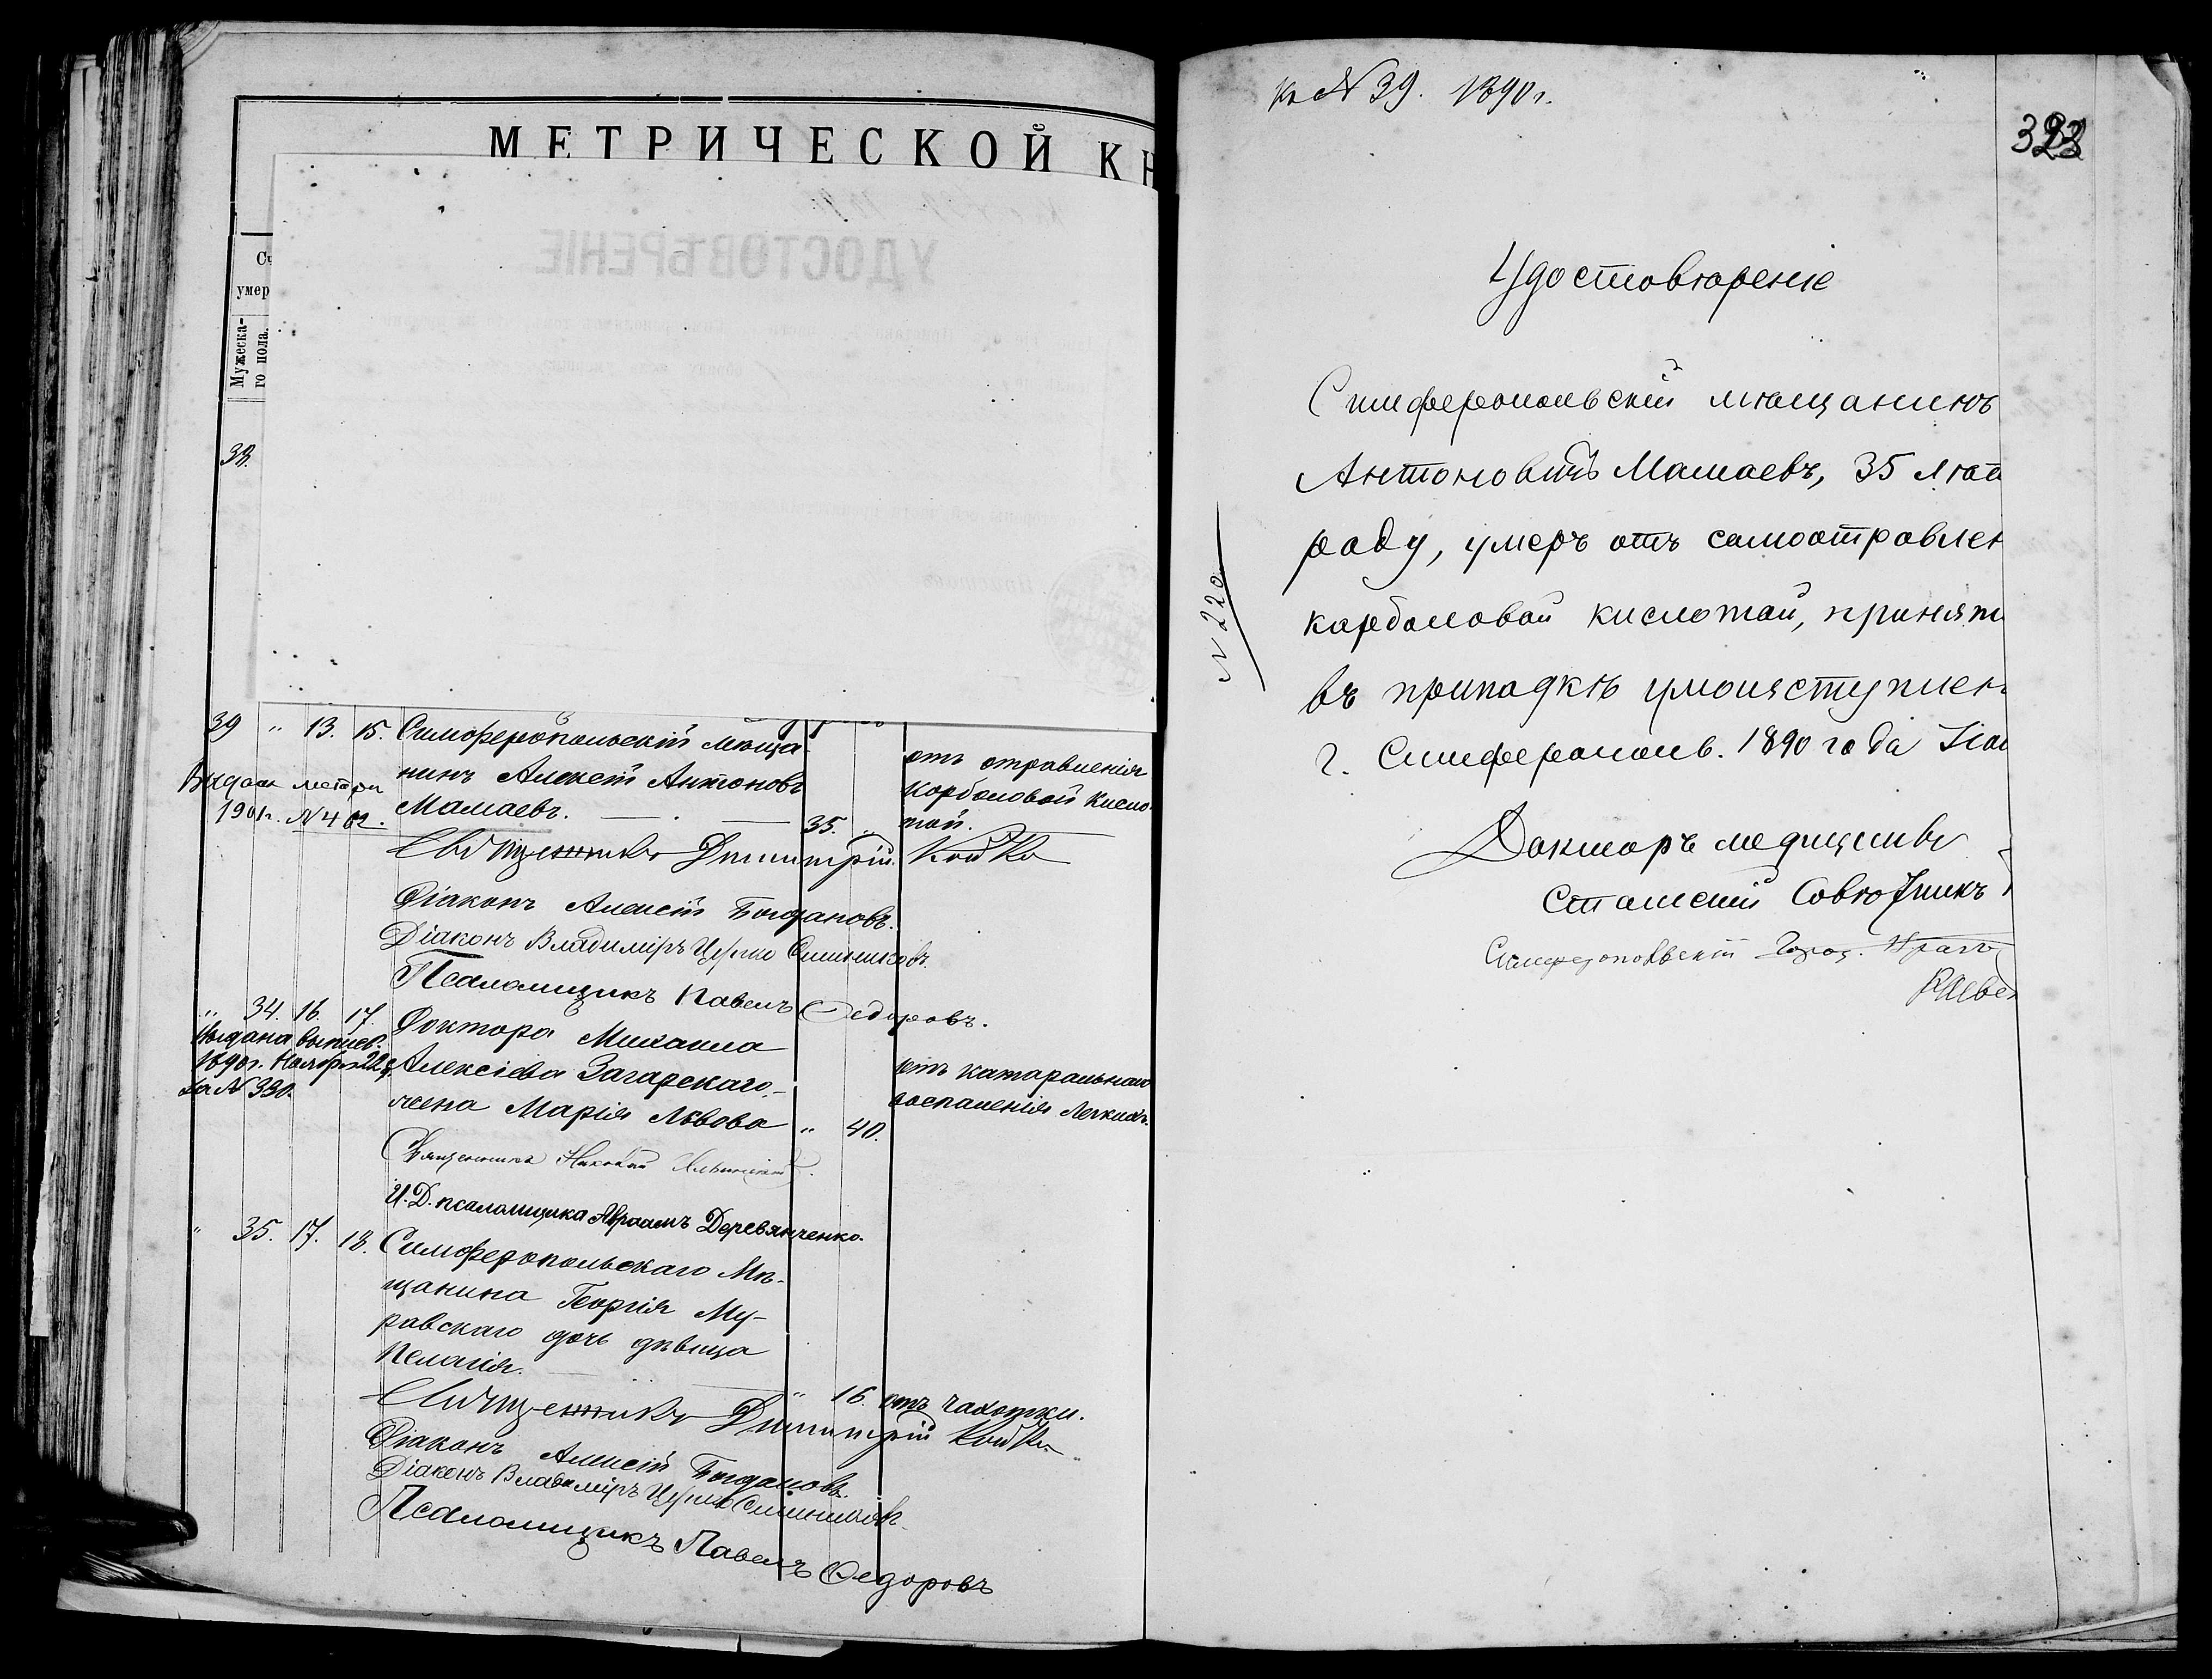 МЕТРИЧЕСКОЙ КН
Сч
умер
Мужеска-
го пола.
УДОСТОВѢРЕНІЕ
38.
39 " 13. 15. Симферопольскій мѣща-
нинъ Алексѣй Антоновъ
Мамаевъ. 35. "
отъ отравленія
карболовой кисло-
той.
Выдан метри
1901г. № 402.
Священникъ Димитрій Койко
Діаконъ Алексѣй Богдановъ.
Діаконъ Владиміръ
Псаломщикъ Павелъ Ѳедоровъ.
" 34. 16. 17. Доктора Михаила
Алексіева Загарскаго,
жена Марія Львова " 40.
отъ катаральнаго
воспаленія легкихъ.
Выдана выпись
1890г. Ноября 22 д.
за № 330.
Священникъ Николай
И. Д. псаломщика Авраамъ Деревянченко.
" 35. 17. 18. Симферопольскаго Мѣ-
щанина Георгія Му-
равскаго дочь дѣвица
Пелагія. " 16. отъ чахотки.
Священникъ Димитрій Койко
Діаконъ Алексѣй Богдановъ.
Діаконъ Владиміръ
Псаломщикъ Павелъ Ѳедоровъ
Къ № 39. 1890 г.
Удостовѣреніе
Симферопольскій мѣщанинъ
Антоновичъ Мамаевъ, 35 лѣт
роду, умеръ отъ самоотравлен
карболовой кислотой, принят
въ припадкѣ умоизступлен
г. Симферополь. 1890 года
Докторъ медицины
Статскій Совѣтникъ
Симферопольскій Город. Врачъ
№ 220